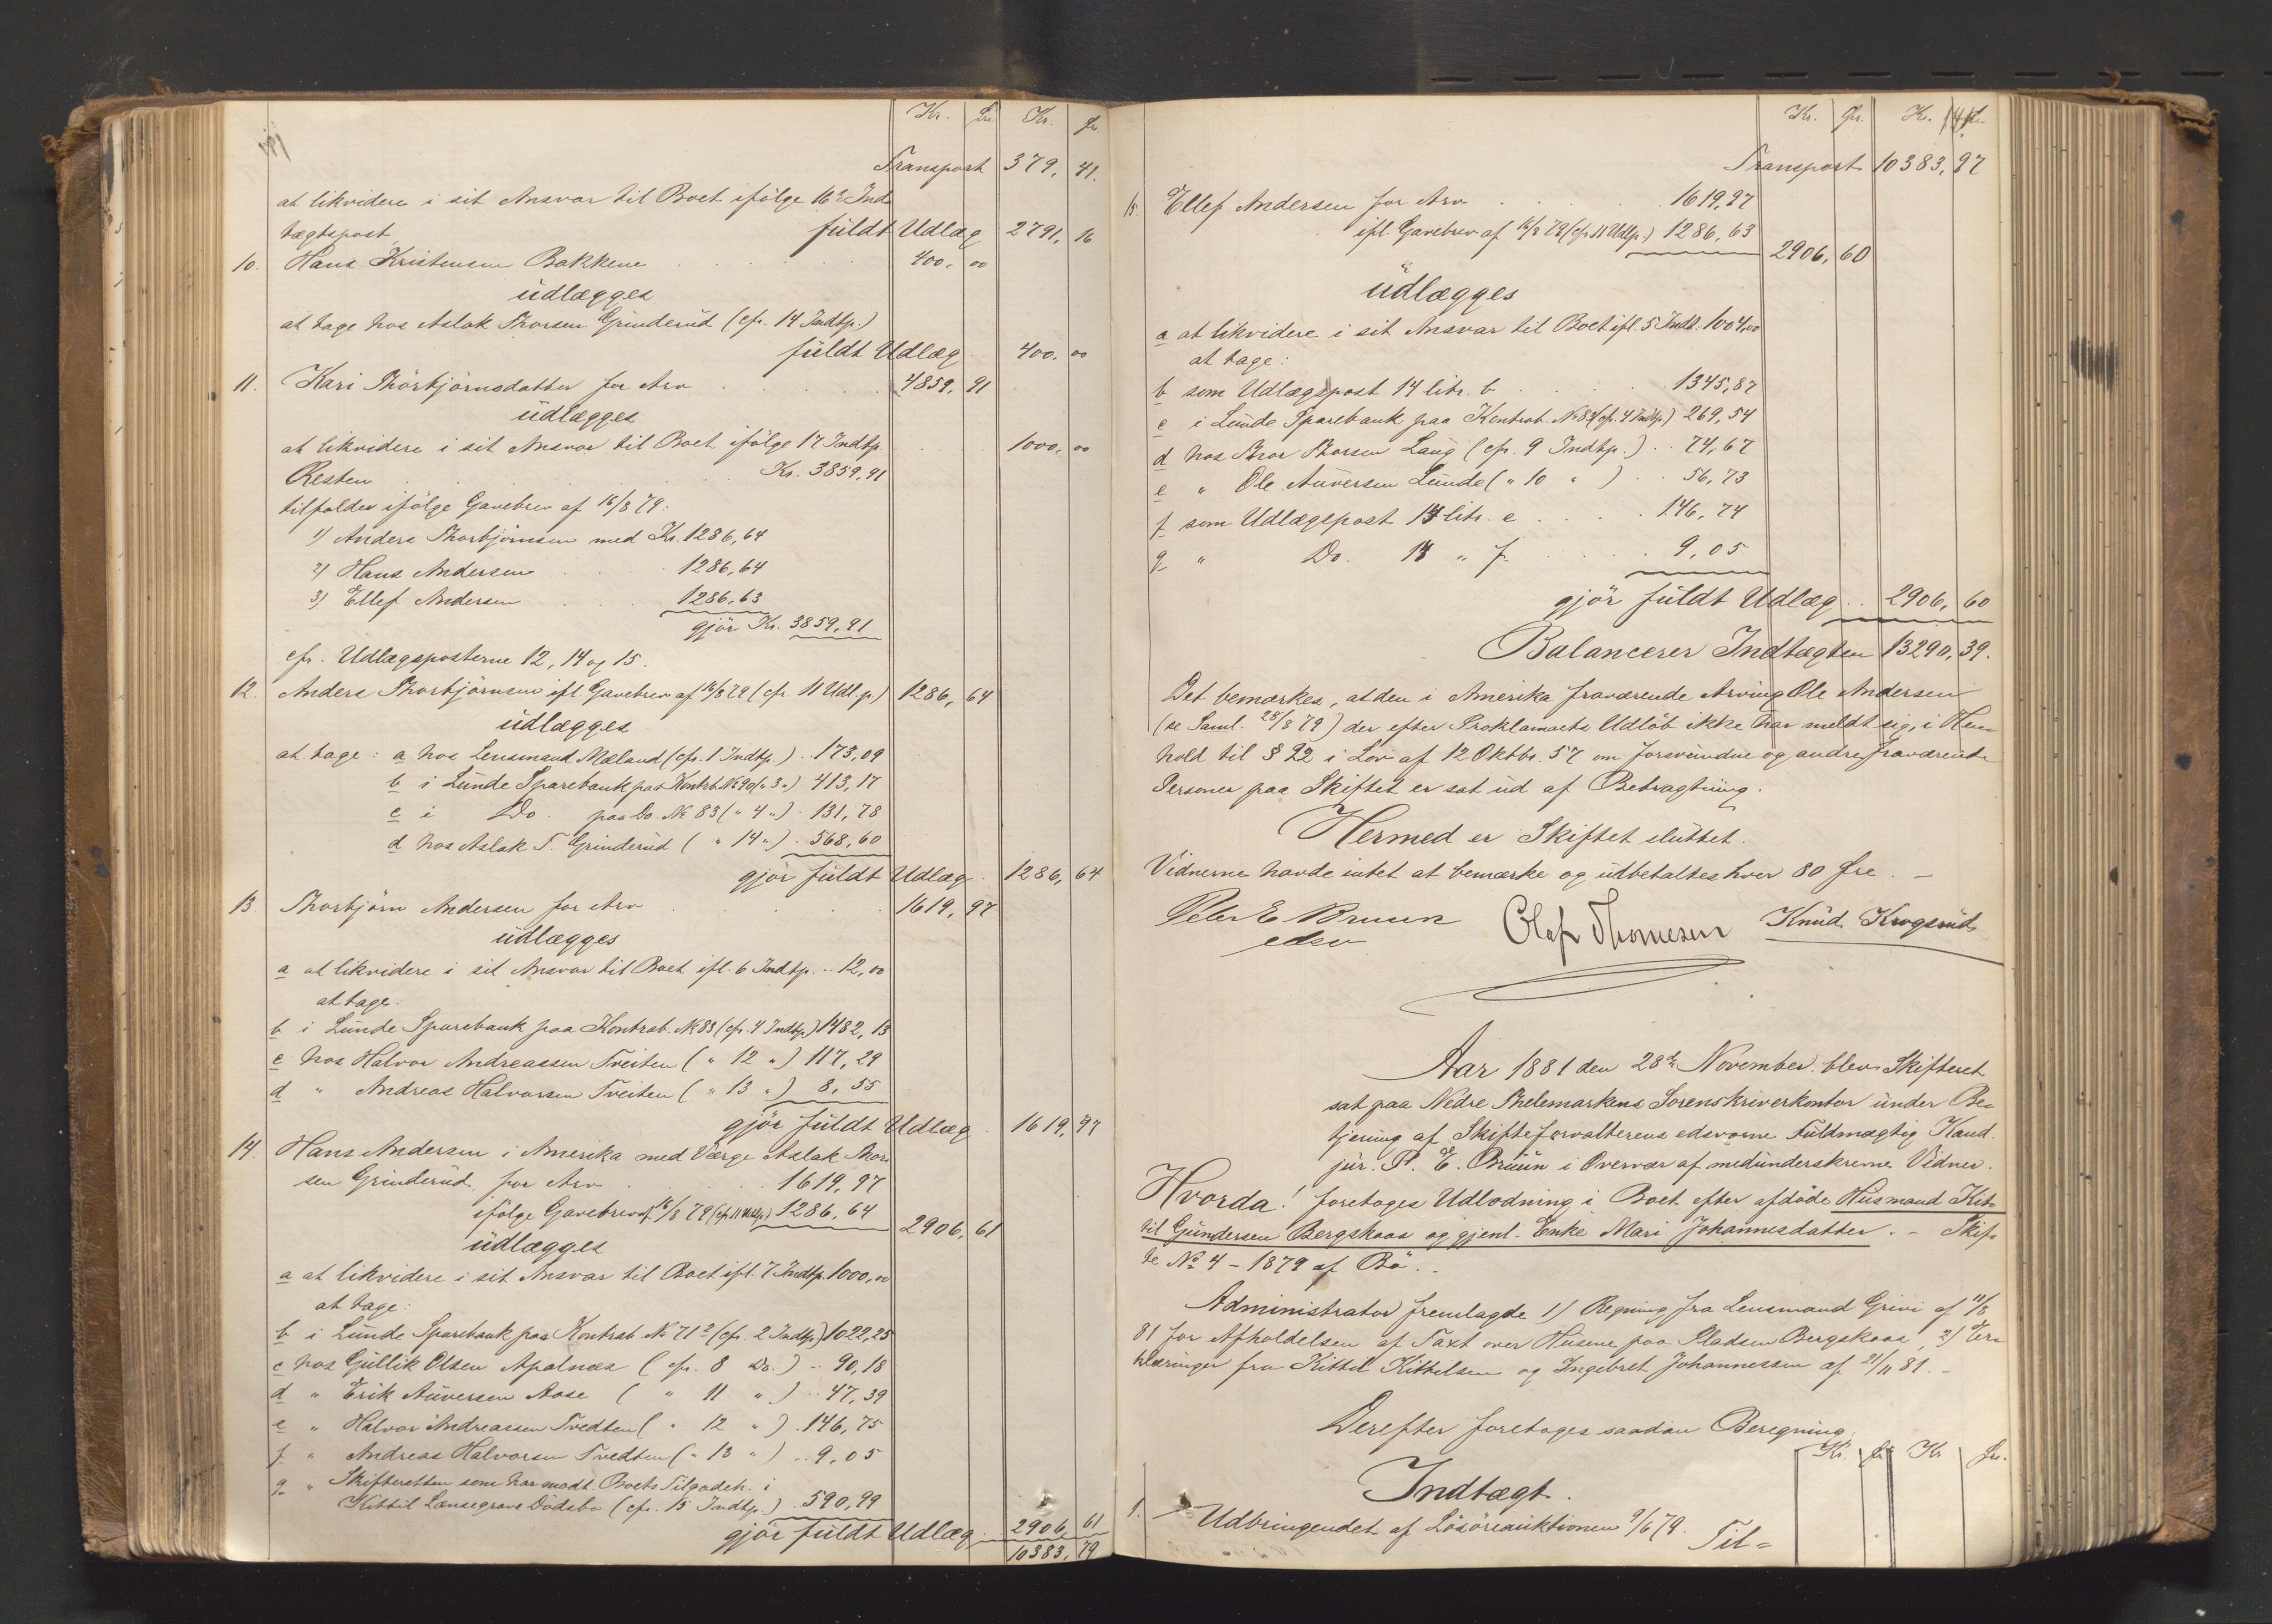 Kr. Øre Kr. Ør.
Transport 379, 41.
at likvidere i sit Ansvar til Boet ifølge 16de Ind-
tægtspost fuldt Udlæg 2791, 16
10. Hans Kristensen Bakkene 400, 00
udlægges
at tage hos Aslak Thorsen Grinderud (cfr. 14 Indtp.)
fuldt Udlæg 400, 00
11. Kari Thorbjörnsdatter for Arv 4859, 91
udlægges
at likvidere i sit Ansvar til Boet ifølge 17 Indtp. 1000, 00
Resten Kr. 3859,91
tilfalder ifølge Gavebrev af 16/8 79:
1) Anders Thorbjörnsen med Kr. 1286,64
2) Hans Andersen 1286,64
3) Ellef Andersen 1286,63
gjör Kr. 3859,91
cfr. Udlægsposterne 12, 14 og 15.
12. Anders Thorbjörnsen ifl. Gavebrev af 16/8 79 (cfr 11 Udl.p.) 1286, 64
udlægges
at tage: a hos Lensmand Mæland (cfr. 1 Indtp.) 173,09
b i Lunde Sparebank paa Kontrb. No 90 (" 3 ") 413,17
c i Do. paa Do. No 83 (" 4 ") 131,78
d hos Aslak T. Grinderud ( " 14 ") 568,60
gjör fuldt Udlæg 1286, 64
13. Thorbjörn Andersen for Arv 1619, 97
udlægges
a at likvidere i sit Ansvar til Boet ifl. 6 Indtp. 12,00
at tage:
b i Lunde Sparebank paa Kontrab. No 83 (cfr. 4 Indtp.) 1482,13
c hos Halvor Andreassen Tveiten ( " 12 " ) 117,29
d " Andreas Halvorsen Tveiten ( " 13 " ) 8,55
gjör fuldt Udlæg 1619, 97
14. Hans Andersen i Amerika med Værge Aslak Thor-
sen Grinderud for Arv 1619,97
ifølge Gavebrev af 16/8 79 (cfr 11 Udlp.) 1286,64
2906, 61
udlægges
a at likvidere i sit Ansvar til Boet ifl. 7 Indtp. 1000,00
at tage:
b i Lunde Sparebank paa Kontrab No 71² (cfr. 2 Indtp.) 1022,25
c hos Gullik Olsen Apalnæs ( cfr. 8 Do. ) 90,18
d " Erik Auversen Aase ( " 11 " ) 47,39
e " Halvor Andreassen Tvedten ( " 12 " ) 146,75
f " Andreas Halvorsen Tvedten ( " 13 " ) 9,05
g " Skifteretten som har modt. Boets Tilgodeh. i
Kittil Lænsegrave Dödsbo (cfr. 15 Indtp.) 590,99
gjör fuldt Udlæg 2906, 61
10383, 79
Kr. Ør. Kr. Ør.
Transport 10383, 97
15. Ellef Andersen for Arv 1619,97
ifl. Gavebrev af 16/8 79 (cfr 11 Udlp.) 1286,63
2906, 60
udlægges
a at likvidere i sit Ansvar til Boet ifl. 5 Indt. 1004,00
at tage:
b som Udlægspost 14 litr. b 1345,87
c i Lunde Sparebank paa Kontrab. No 83 (cfr. 4 Indtp.) 269,54
d hos Thor Thorsen Laug (cfr. 9 Indtp.) 74,67
e " Ole Auversen Lunde ( " 10 " ) 56,73
f som Udlægspost 14 litr. e 146,74
g " Do. 14 " f 9,05
gjör fuldt Udlæg 2906, 60
Balancerer Indtægten 13290, 39.
Det bemærkes, at den i Amerika fraværende Arving Ole Andersen
(se Saml. 28/8 79) der efter Proklamaets Udløb ikke har meldt sig, i Hen-
hold til § 22 i Lov af 12 Oktbr. 57 om forsvundne og andre fraværende
Personer paa Skiftet er sat ud af Betragtning.
Hermed er Skiftet sluttet.
Vidnerne havde intet at bemærke og udbetaltes hver 80 Øre. –
Peter E Bruun Olaf Thomesen Knud Krogsrud
edsv
Aar 1881 den 28de November blev Skifteret
sat paa Nedre Thelemarkens Sorenskriverkontor under Be-
tjening af Skifteforvalterens edsvorne Fuldmægtig Kand.
jur. P. E. Bruun i Overvær af medunderskrevne Vidner.
Hvorda! foretoges Udlodning i Boet efter afdöde Husmand Kit-
til Gundersen Bergskaas og gjenl. Enke Mari Johannesdatter. – Skif-
te No 4 – 1879 af Bö. –
Administrator fremlagde 1) Regning fra Lensmand Grivi af 11/8
81 for Afholdelsen af Taxt over Husene paa Pladsen Bergskaas, 2) Er-
klæringer fra Kittil Kittilsen og Ingebret Johannessen af 21/11 81. –
Derefter foretoges saadan Beregning:
Kr. Ør Kr Ør.
Indtægt.
1. Udbringendet af Lösöreauktionen 9/6 79.
Til-